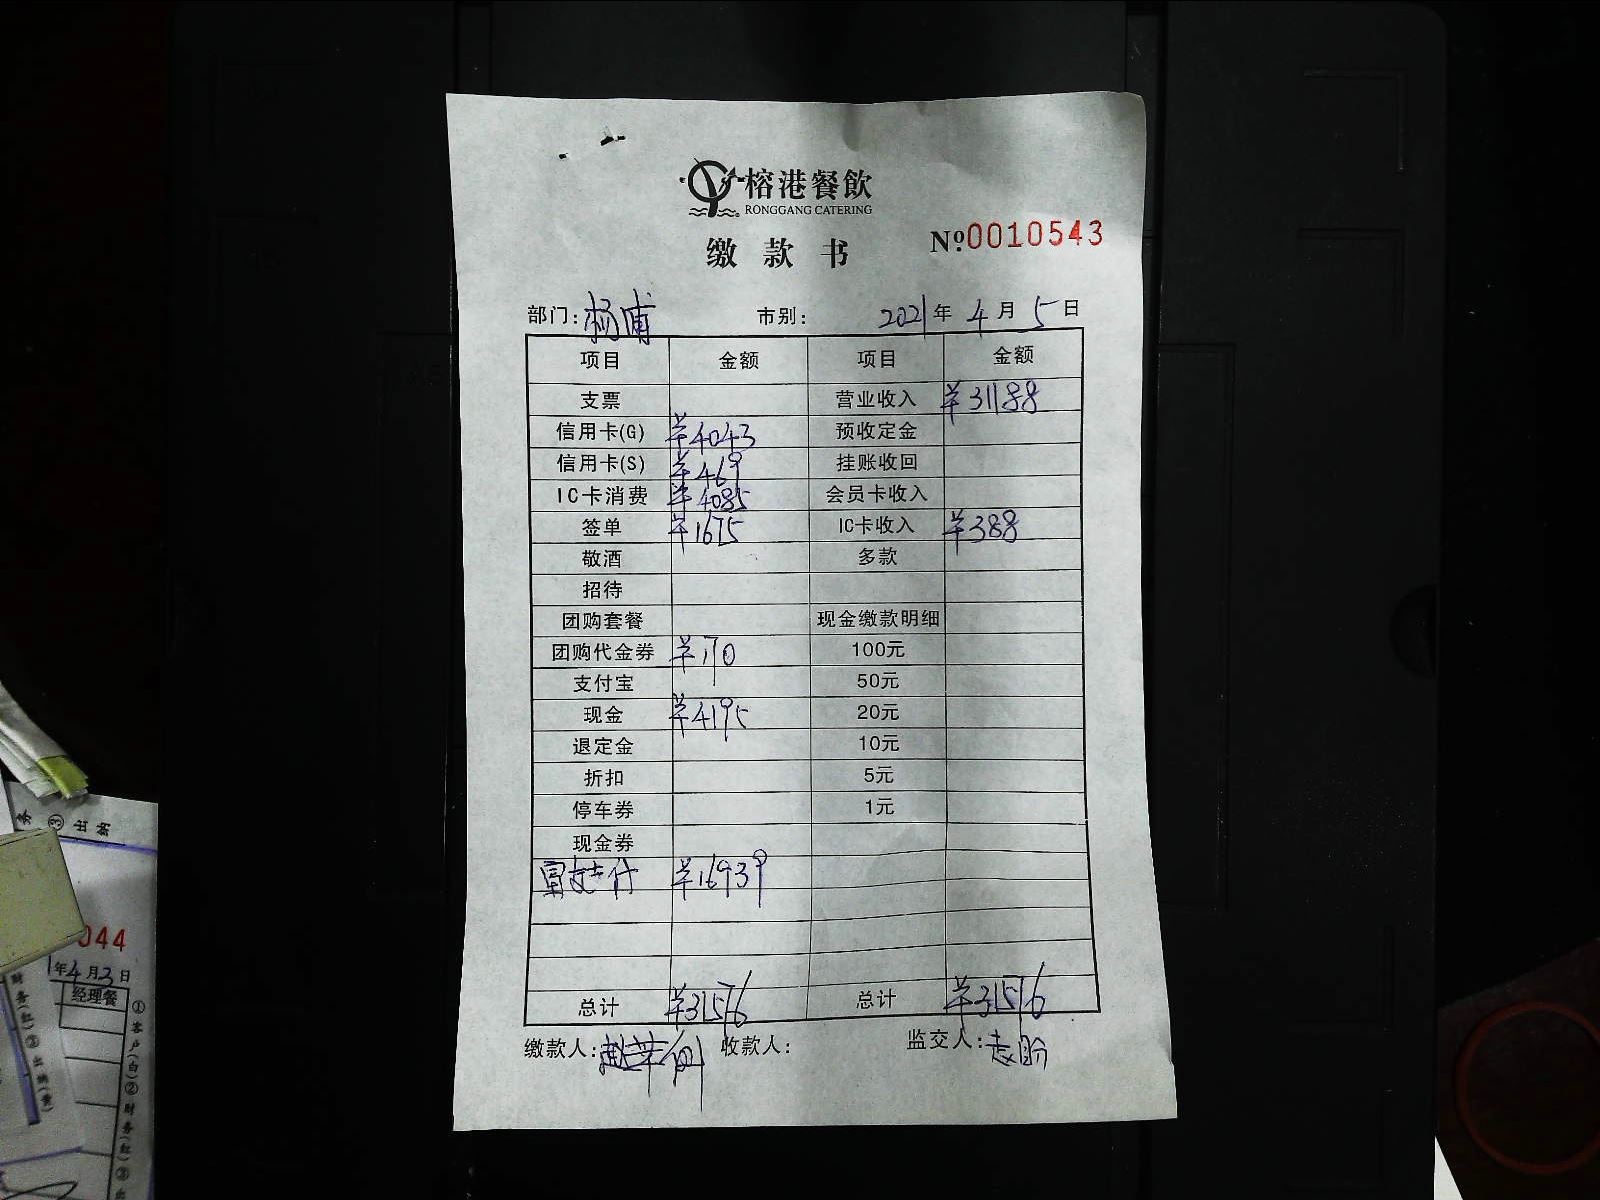 榕港餐飲
RONGGANG CATERING
缴款书
Nº0010543
部门:杨浦 市别: 2021年4月5日
项目 金额 项目 金额
支票 营业收入 ¥31188
信用卡(G) ¥4043 预收定金
信用卡(S) ¥469 挂账收回
IC卡消费 ¥4085 会员卡收入
签单 ¥1675 IC卡收入 ¥388
敬酒 多款
招待
团购套餐 现金缴款明细
团购代金券 ¥170 100元
支付宝 50元
现金 ¥4195 20元
退定金 10元
折扣 5元
停车券 1元
现金券
¥16939
总计 ¥31576 总计 ¥31576
缴款人: 收款人: 监交人:
③出纳
044
年4月3日
经理餐
①客户(白)②财务(红)③
财务(红)③出纳(黄)